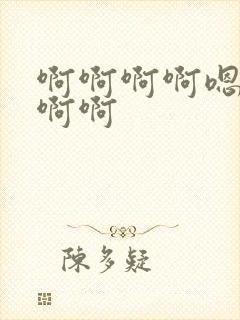 啊啊啊啊嗯
啊啊
陳多疑